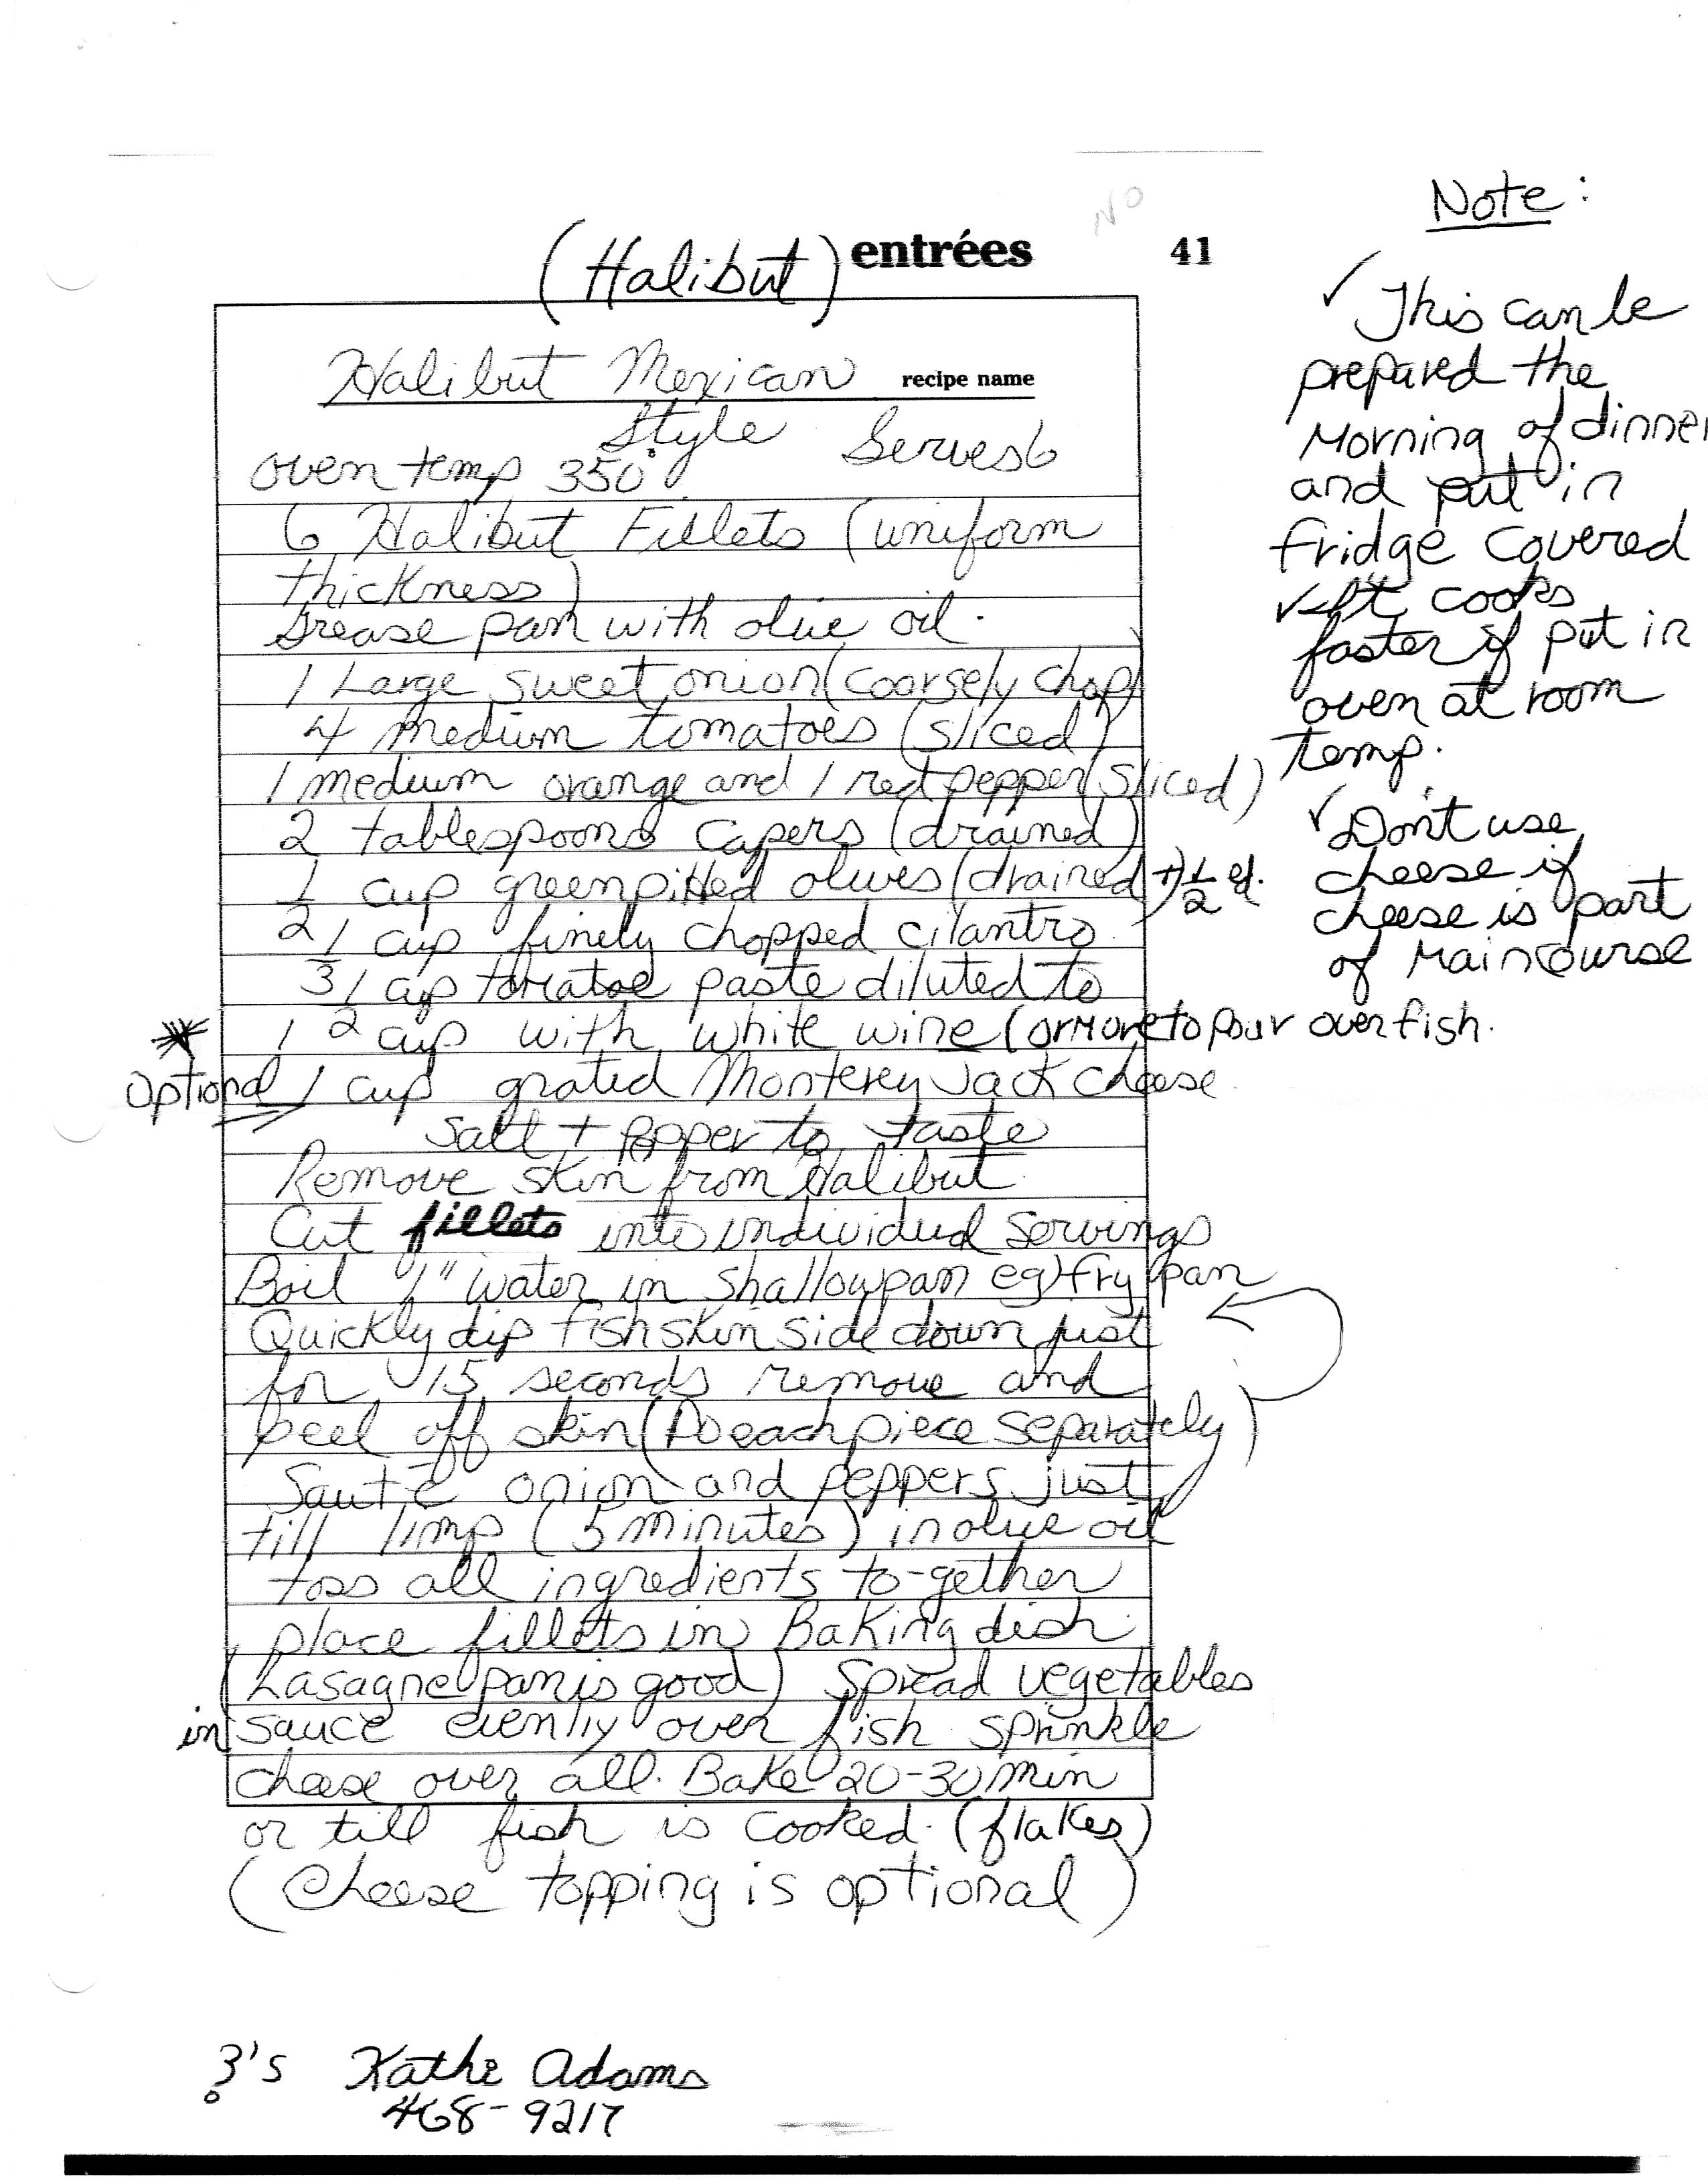 NO
(Halibut) entrées 41
Halibut Mexican recipe name
Style Serves 6
oven temp 350°
6 Halibut Fillets (uniform
thickness)
Grease pan with olive oil.
1 Large sweet onion (coarsely chop)
4 medium tomatoes (sliced)
1 medium orange and 1 red pepper (sliced)
2 tablespoons capers (drained)
1/2 cup green pitted olives (drained +)
1/3 cup finely chopped cilantro
1/2 cup tomatoe paste diluted to
1 cup with white wine (or More to pour over fish.
Optional 1 cup grated Monterey Jack cheese
Salt + Pepper to taste
Remove skin from Halibut
Cut fillets into individual servings
Boil 1" water in shallow pan eg) fry pan
Quickly dip fish skin side down just
for 15 seconds remove and
peel off skin (Do each piece separately)
Sauté onion and peppers just
till limp (5 minutes) in olive oil
toss all ingredients to-gether
place fillets in Baking dish
(Lasagne pan is good) Spread vegetables
in sauce evenly over fish sprinkle
cheese over all. Bake 20-30 min
or till fish is cooked. (flakes)
(Cheese topping is optional)
?'s Kathe Adams
468-9217
Note:
✓ This can be
prepared the
Morning of dinner
and put in
fridge covered
✓ It cooks
faster if put in
oven at room
temp.
✓ Don't use
cheese if
cheese is part
of Main course